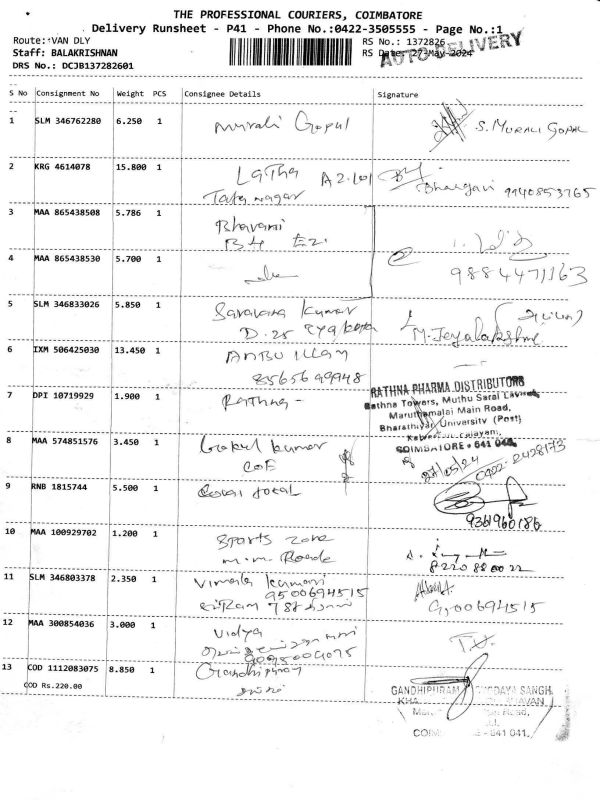 THE PROFESSIONAL COURIERS, COIMBATORE
Delivery Runsheet - P41 - Phone No.:0422-3505555 - Page No.:1
Route: VAN DLY
RS No.: 1372826
Staff: BALAKRISHNAN
RS Date: 27-May-2024
AUTO DELIVERY
DRS No.: DCJB137282601
S No Consignment No Weight PCS Consignee Details Signature
1 SLM 346762280 6.250 1 Murali Gopal S. MURALI GOPAL
2 KRG 4614078 15.800 1 Latha A2.101 Bhargavi 9940853765
Tata nagar
3 MAA 865438508 5.786 1 Bhavani
B4 E2.
4 MAA 865438530 5.700 1 9884471163
5 SLM 346833026 5.850 1 Saravana Kumar
D.25 M. Jeyalakshmi
6 IXM 506425030 13.450 1 ANBU ILLAM
8565699948
7 DPI 10719929 1.900 1 Rathna -
RATHNA PHARMA DISTRIBUTORS
Rathna Towers, Muthu Sarai
Maruthamalai Main Road,
Bharathiyar University (Post)
COIMBATORE - 641 046.
8 MAA 574851576 3.450 1 Gokul Kumar
COE
27/05/24
0422-2428173
9 RNB 1815744 5.500 1 total
10 MAA 100929702 1.200 1 Sports zone
M.M. Roade
8220880022
11 SLM 346803378 2.350 1 Vimala Kumari
9500694515
9500694515
12 MAA 300854036 3.000 1 Vidya
13 COD 1112083075 8.850 1 Gandhipuram
COD Rs.220.00
GANDHIPURAM SANGH
COIM - 641 041.